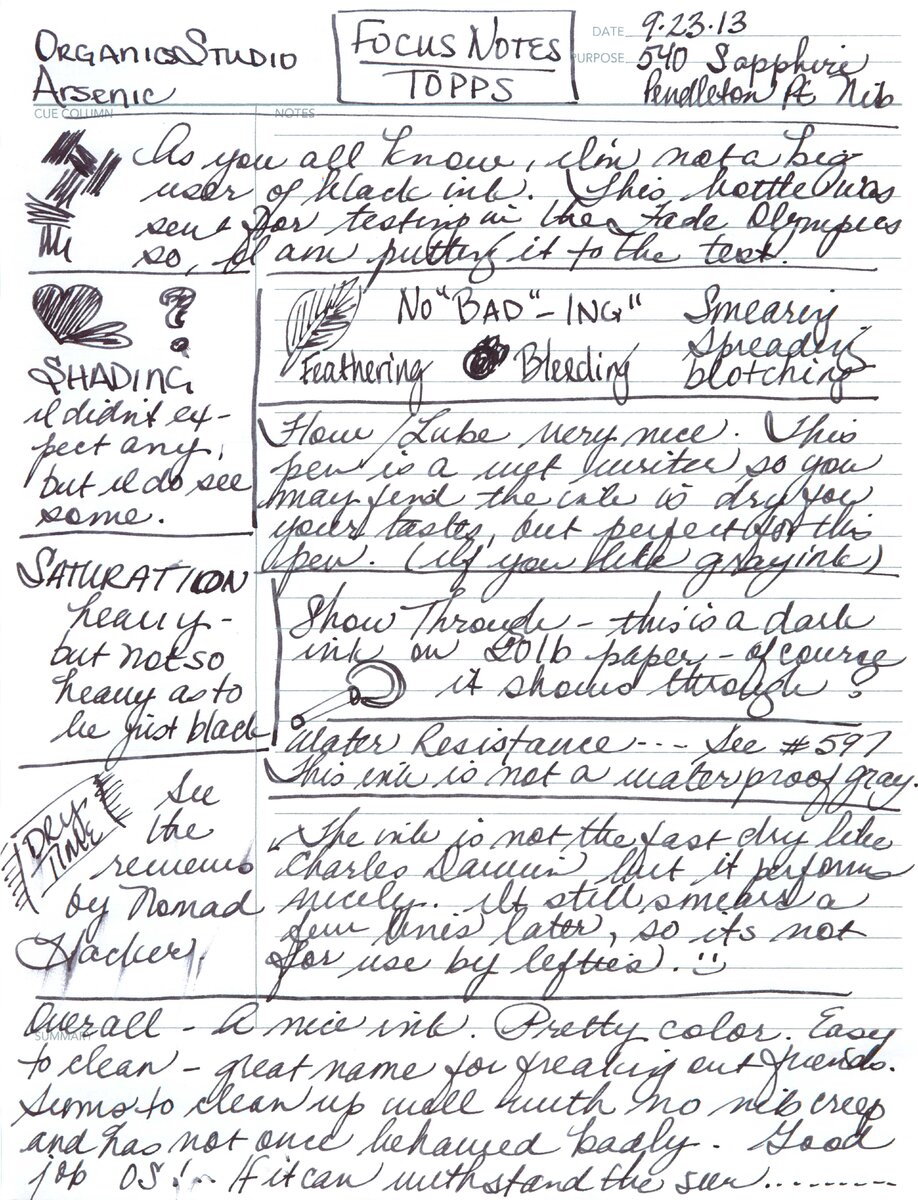 OrganicsStudio
Arsenic
Focus Notes
TOPPS
DATE 9.23.13
PURPOSE 540 Sapphire
Pendleton PE Nib
CUE COLUMN
NOTES
As you all know, I'm not a big
user of black ink. This bottle was
sent for testing in the Fade Olympics
so, I am putting it to the test.
?
SHADING
I didn't ex-
pect any,
but I do see
some.
No "BAD"-ING"
Feathering
Bleeding
Smearing
Spreading
blotching
Flow/Lube very nice. This
pen is a wet writer so you
may find the ink is dry for
your tastes, but perfect for this
pen. (If you like gray ink)
SATURATION
heavy -
but not so
heavy as to
be just black
Show Through - this is a dark
ink on 20lb paper - of course
it shows through?
Water Resistance --- See #597
This ink is not a waterproof gray.
DRY
TIME
See
the
reviews
by Nomad
Hacker.
The ink is not the fast dry like
Charles Darwin but it performs
nicely. It still smears a
few lines later, so its not
for use by lefties.
SUMMARY
Overall - A nice ink. Pretty color. Easy
to clean - great name for freaking out friends.
Seems to clean up well with no nib creep
and has not once behaved badly. Good
job OS! If it can withstand the sun.........